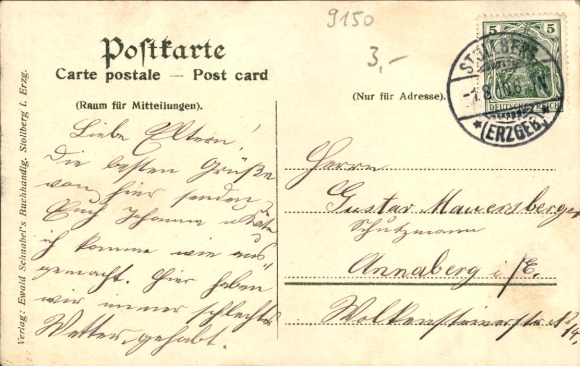 9150
3,-
Postkarte
Carte postale — Post card
(Raum für Mitteilungen).
(Nur für Adresse).
5 5
DEUTSCHES REICH
STOLLBERG
*(ERZGEB.)*
Verlag: Ewald Schnabel's Buchhandlg. Stollberg i. Erzg.
Liebe Eltern!
Die besten Grüße
von hier senden
Euch Johanna u.
ich komme wie aus-
gemacht. Hier haben
wir immer schlechtes
Wetter gehabt.
Herrn
Gustav Mauersberger
Schutzmann
Annaberg i/E.
Wolkensteinerstr.